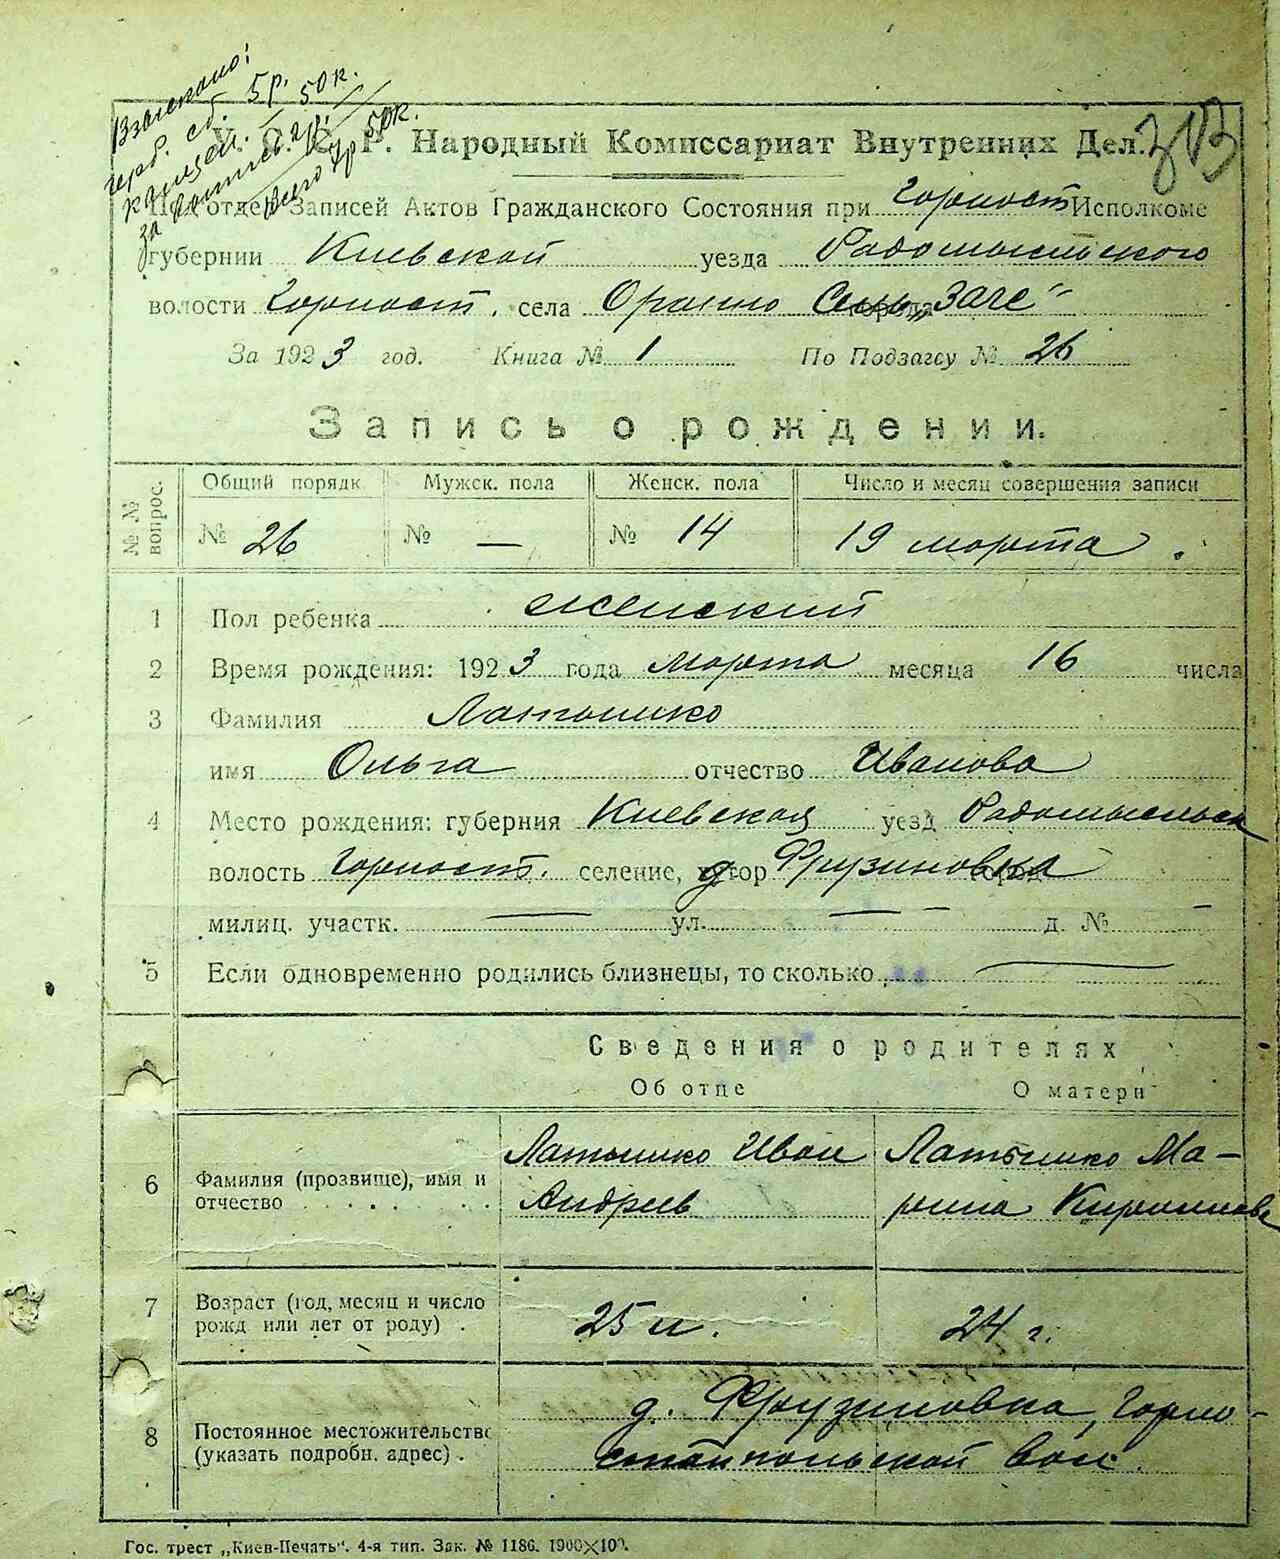 Взыскано:
герб. сб. 5р.
канцел. 50к.
за
Всего 7р 50к.
У. С. С. Р. Народный Комиссариат Внутренних Дел.
313
Подотдел Записей Актов Гражданского Состояния при Горност Исполкоме
губернии Киевской уезда Радомысльского
волости Горност. села Оранно
За 1923 год. Книга № 1 По Подзагсу № 26
Запись о рождении.
№№ вопрос.
Общий порядк. Мужск. пола Женск. пола Число и месяц совершения записи
№ 26 № — № 14 19 марта.
1 Пол ребенка женский
2 Время рождения: 1923 года марта месяца 16 числа
3 Фамилия Латышко
имя Ольга отчество Иванова
4 Место рождения: губерния Киевская уезд Радомысльск
волость Горност. селение, д. Фрузиновка
милиц. участк. — ул. — — д. № —
5 Если одновременно родились близнецы, то сколько —
Сведения о родителях
Об отце О матери
6 Фамилия (прозвище), имя и Латышко Иван Латышко Ма-
отчество . . . . . . Андреев рина Кириллова
7 Возраст (год, месяц и число
рожд или лет от роду) . 25 л. 24 г.
8 Постоянное местожительство д. Фрузиновка, Горно-
(указать подробн. адрес) . стайпольской вол.
Гос. трест „Киев-Печать". 4-я тип. Зак. № 1186. 1900×100.